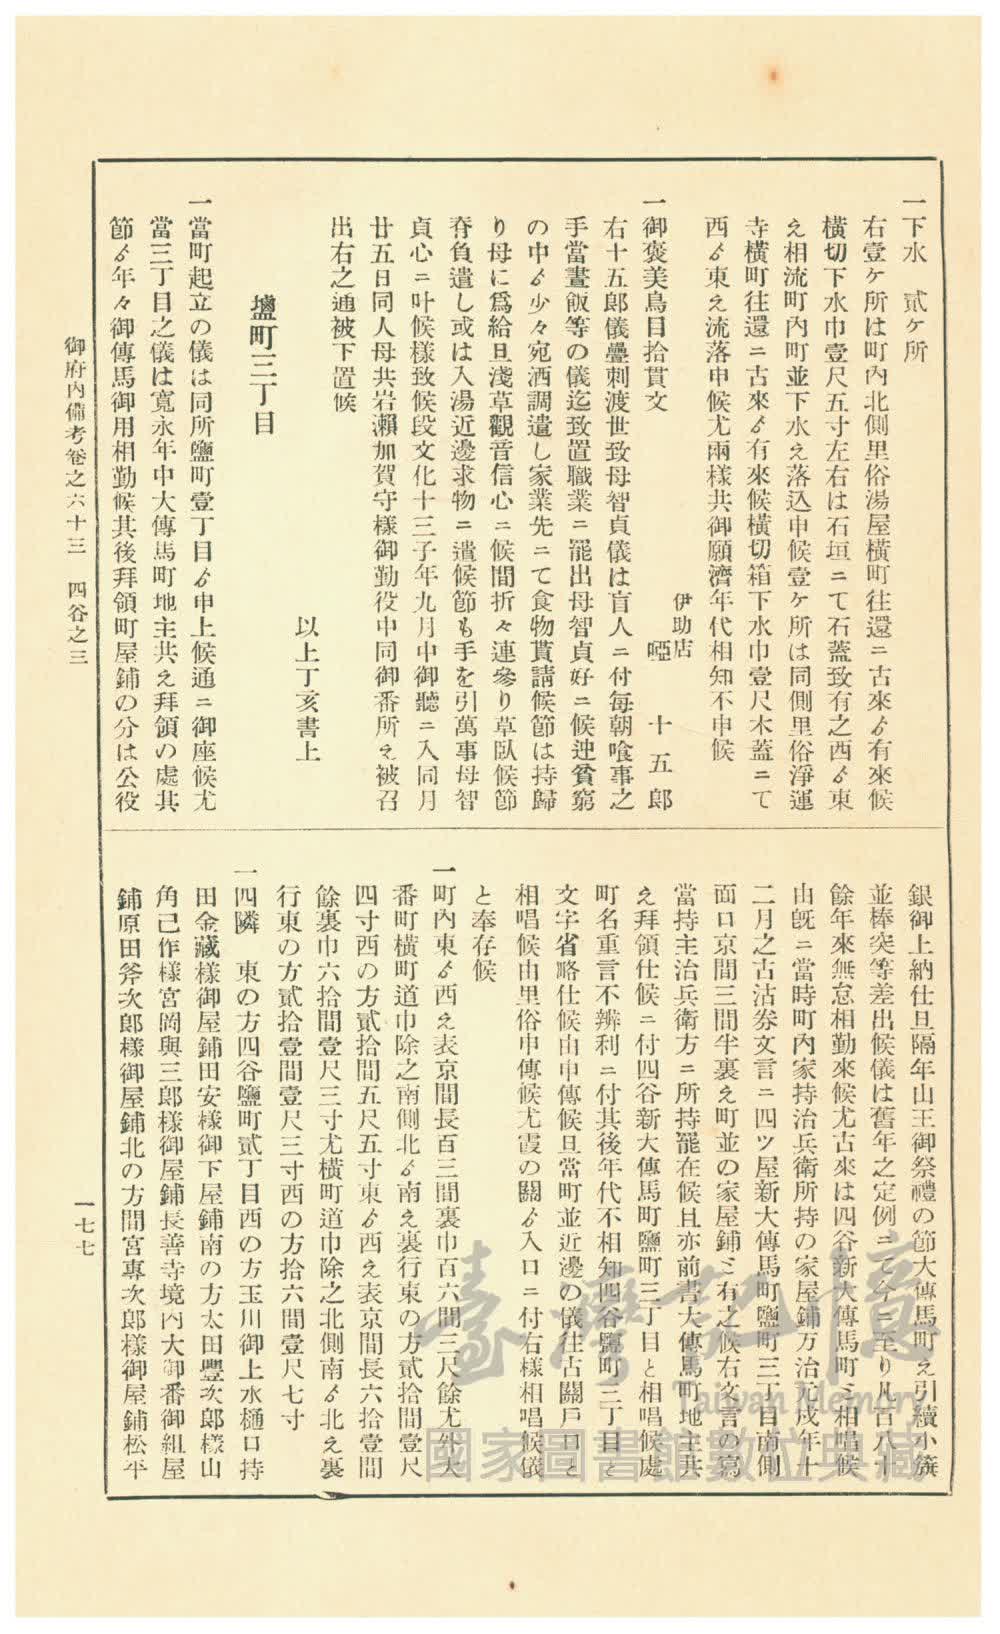 一下水　貳ケ所
右壹ケ所は町內北側里俗湯屋橫町往還ニ古來ゟ有來候
橫切下水巾壹尺五寸左右は石垣ニて石蓋致有之西ゟ東
え相流町內町並下水え落込申候壹ケ所は同側里俗淨運
寺橫町往還ニ古來ゟ有來候橫切箱下水巾壹尺木蓋ニて
西ゟ東え流落申候尤兩樣共御願濟年代相知不申候
伊助店
啞　十五郎
一御褒美鳥目拾貫文
右十五郎儀疊刺渡世致母智貞儀は盲人ニ付每朝喰事之
手當晝飯等の儀迄致置職業ニ罷出母智貞好ニ候迚貧窮
の中ゟ少々宛酒調遣し家業先ニて食物貰請候節は持歸
り母に爲給旦淺草觀音信心ニ候間折々連參り草臥候節
脊負遣し或は入湯近邊求物ニ遣候節も手を引萬事母智
貞心ニ叶候樣致候段文化十三子年九月中御聽ニ入同月
廿五日同人母共岩瀨加賀守樣御勤役中同御番所え被召
出右之通被下置候
以上丁亥書上
鹽町三丁目
一當町起立の儀は同所鹽町壹丁目ゟ申上候通ニ御座候尤
當三丁目之儀は寬永年中大傳馬町地主共え拜領の處其
節ゟ年々御傳馬御用相勤候其後拜領町屋鋪の分は公役
銀御上納仕旦隔年山王御祭禮の節大傳馬町え引續小簱
並棒突等差出候儀は舊年之定例ニて今ニ至り凡百八十
餘年來無怠相勤來候尤古來は四谷新大傳馬町ミ相唱候
由旣ニ當時町內家持治兵衛所持の家屋鋪万治元戌年十
二月之古沽券文言ニ四ツ屋新大傳馬町鹽町三丁目南側
面口京間三間半裏え町並の家屋鋪ミ有之候右文言の寫
當持主治兵衛方ニ所持罷在候且亦前書大傳馬町地主共
え拜領仕候ニ付四谷新大傳馬町鹽町三丁目と相唱候處
町名重言不辨利ニ付其後年代不相知四谷鹽町三丁目と
文字省略仕候由申傳候旦當町並近邊の儀往古關戶口と
相唱候由里俗申傳候尤霞の關ゟ入口ニ付右樣相唱候儀
と奉存候
一町內東ゟ西え表京間長百三間裏巾百六間三尺餘尤外大
番町橫町道巾除之南側北ゟ南え裏行東の方貳拾間壹尺
四寸西の方貳拾間五尺五寸東ゟ西え表京間長六拾壹間
餘裏巾六拾間壹尺三寸尤橫町道巾除之北側南ゟ北え裏
行東の方貳拾壹間壹尺三寸西の方拾六間壹尺七寸
一四隣　東の方四谷鹽町貳丁目西の方玉川御上水樋口持
田金藏樣御屋鋪田安樣御下屋鋪南の方太田豐次郎樣山
角己作樣宮岡與三郎樣御屋鋪長善寺境內大御番御組屋
鋪原田斧次郎樣御屋鋪北の方間宮專次郎樣御屋鋪松平
御府內備考卷之六十三　四谷之三
一七七
臺灣記憶
Taiwan Memory
國家圖書館數位典藏